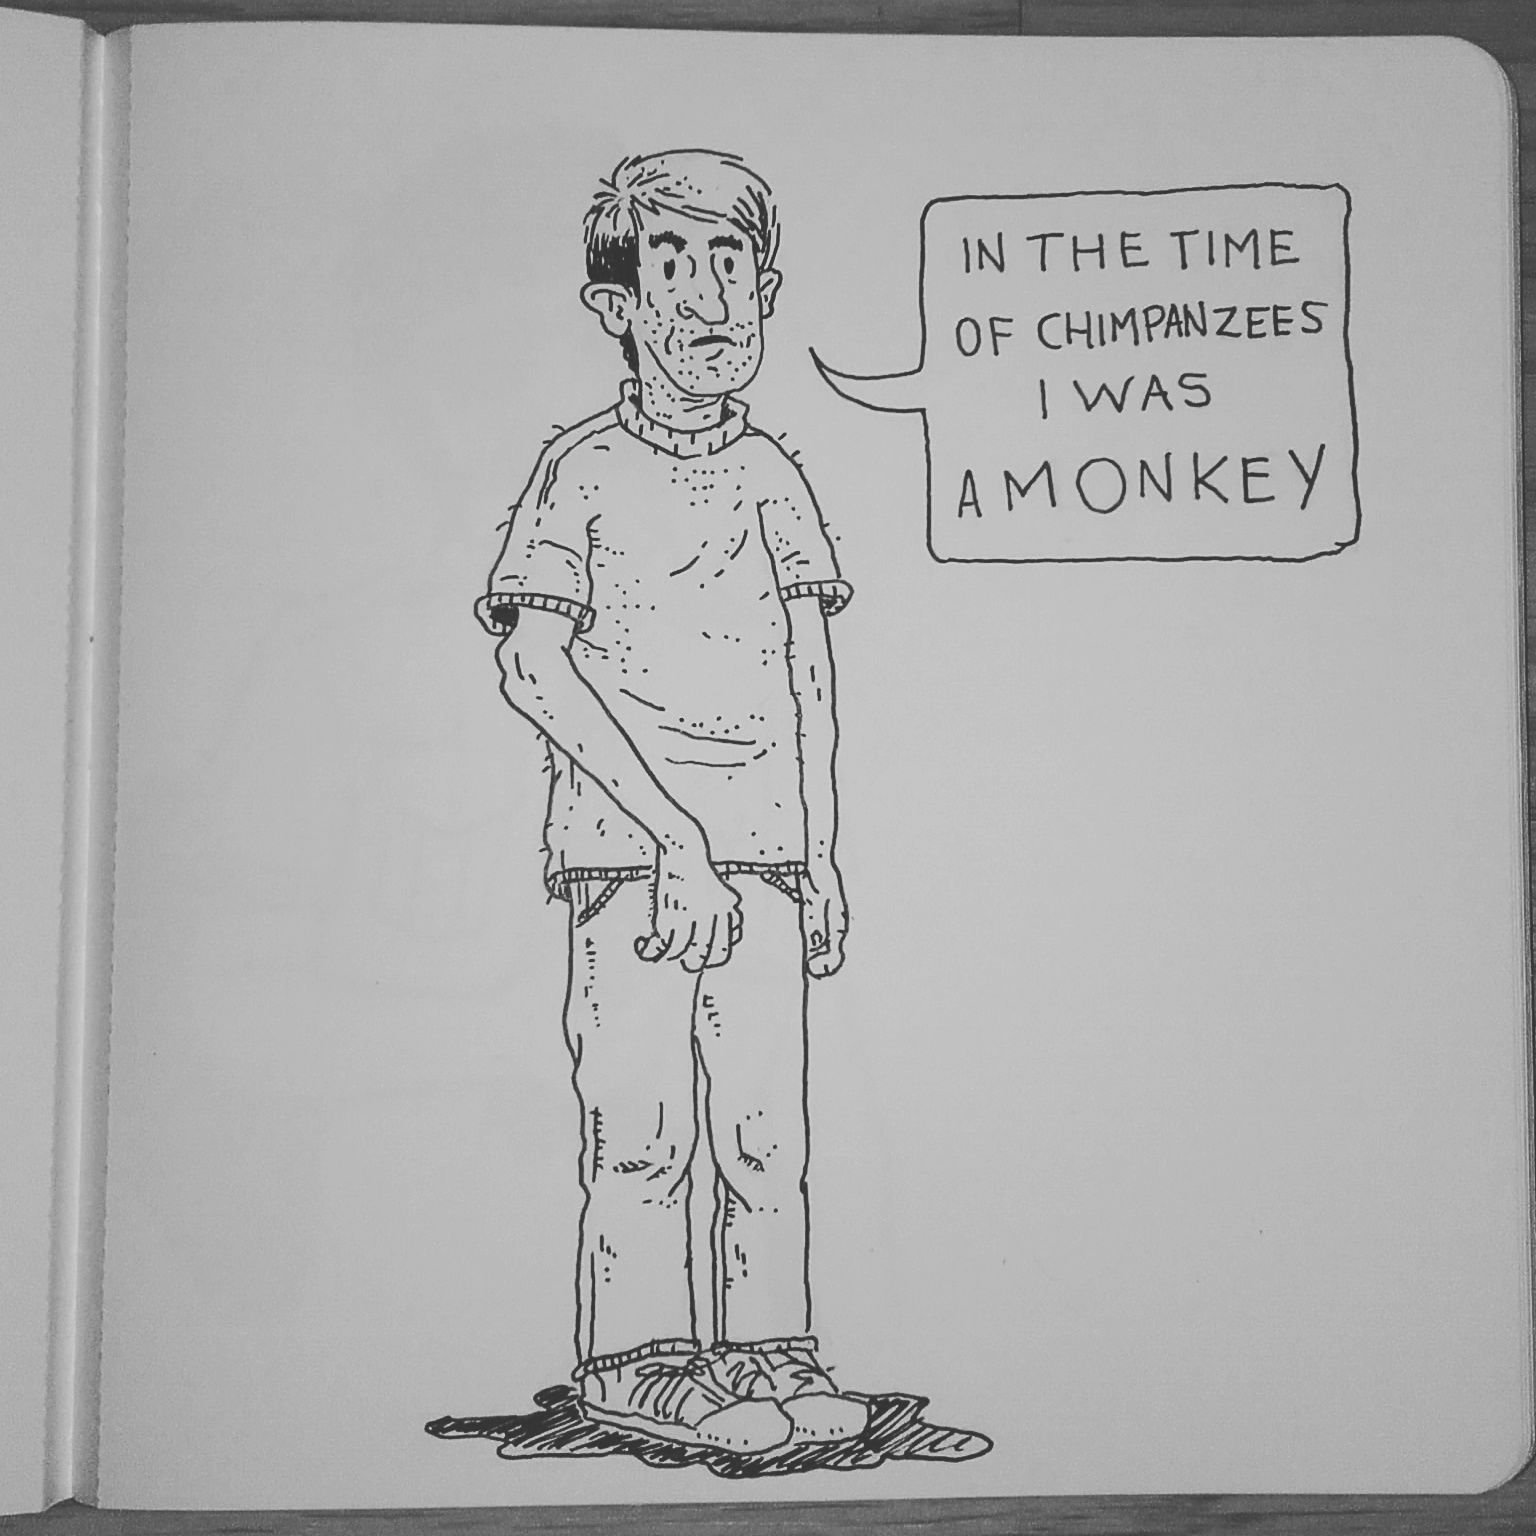 IN THE TIME
OF CHIMPANZEES
I WAS
A MONKEY